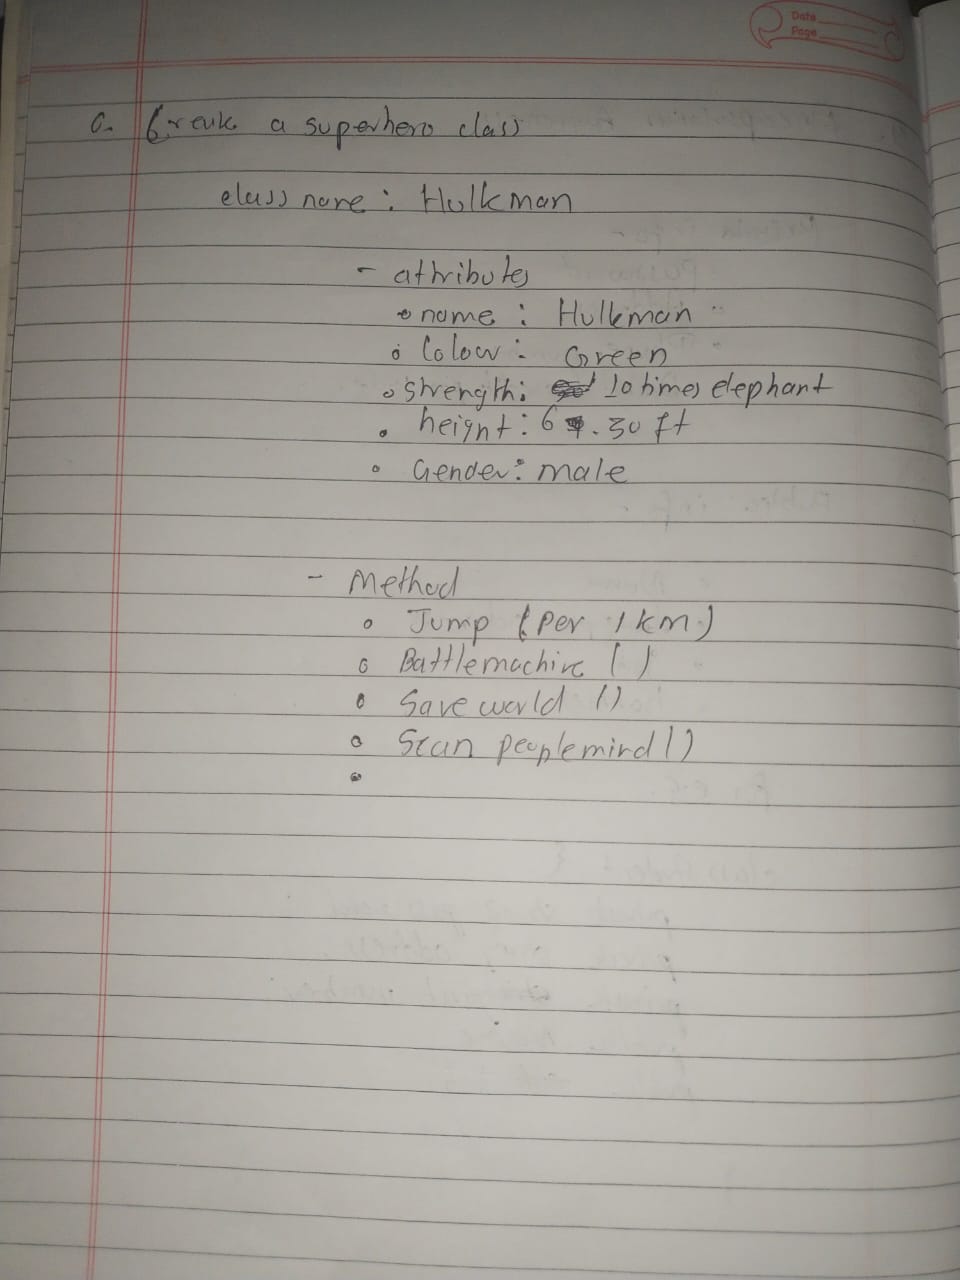 Date
Page
Q. Create a superhero class
class name : Hulkman
- attributes
o name : Hulkman
o Colour : Green
o Strength : 10 times elephant
• height : 6.30 ft
o Gender : male
- Method
o Jump (Per 1 km)
o Battlemachine ( )
o Save world ()
o Scan peoplemind ()